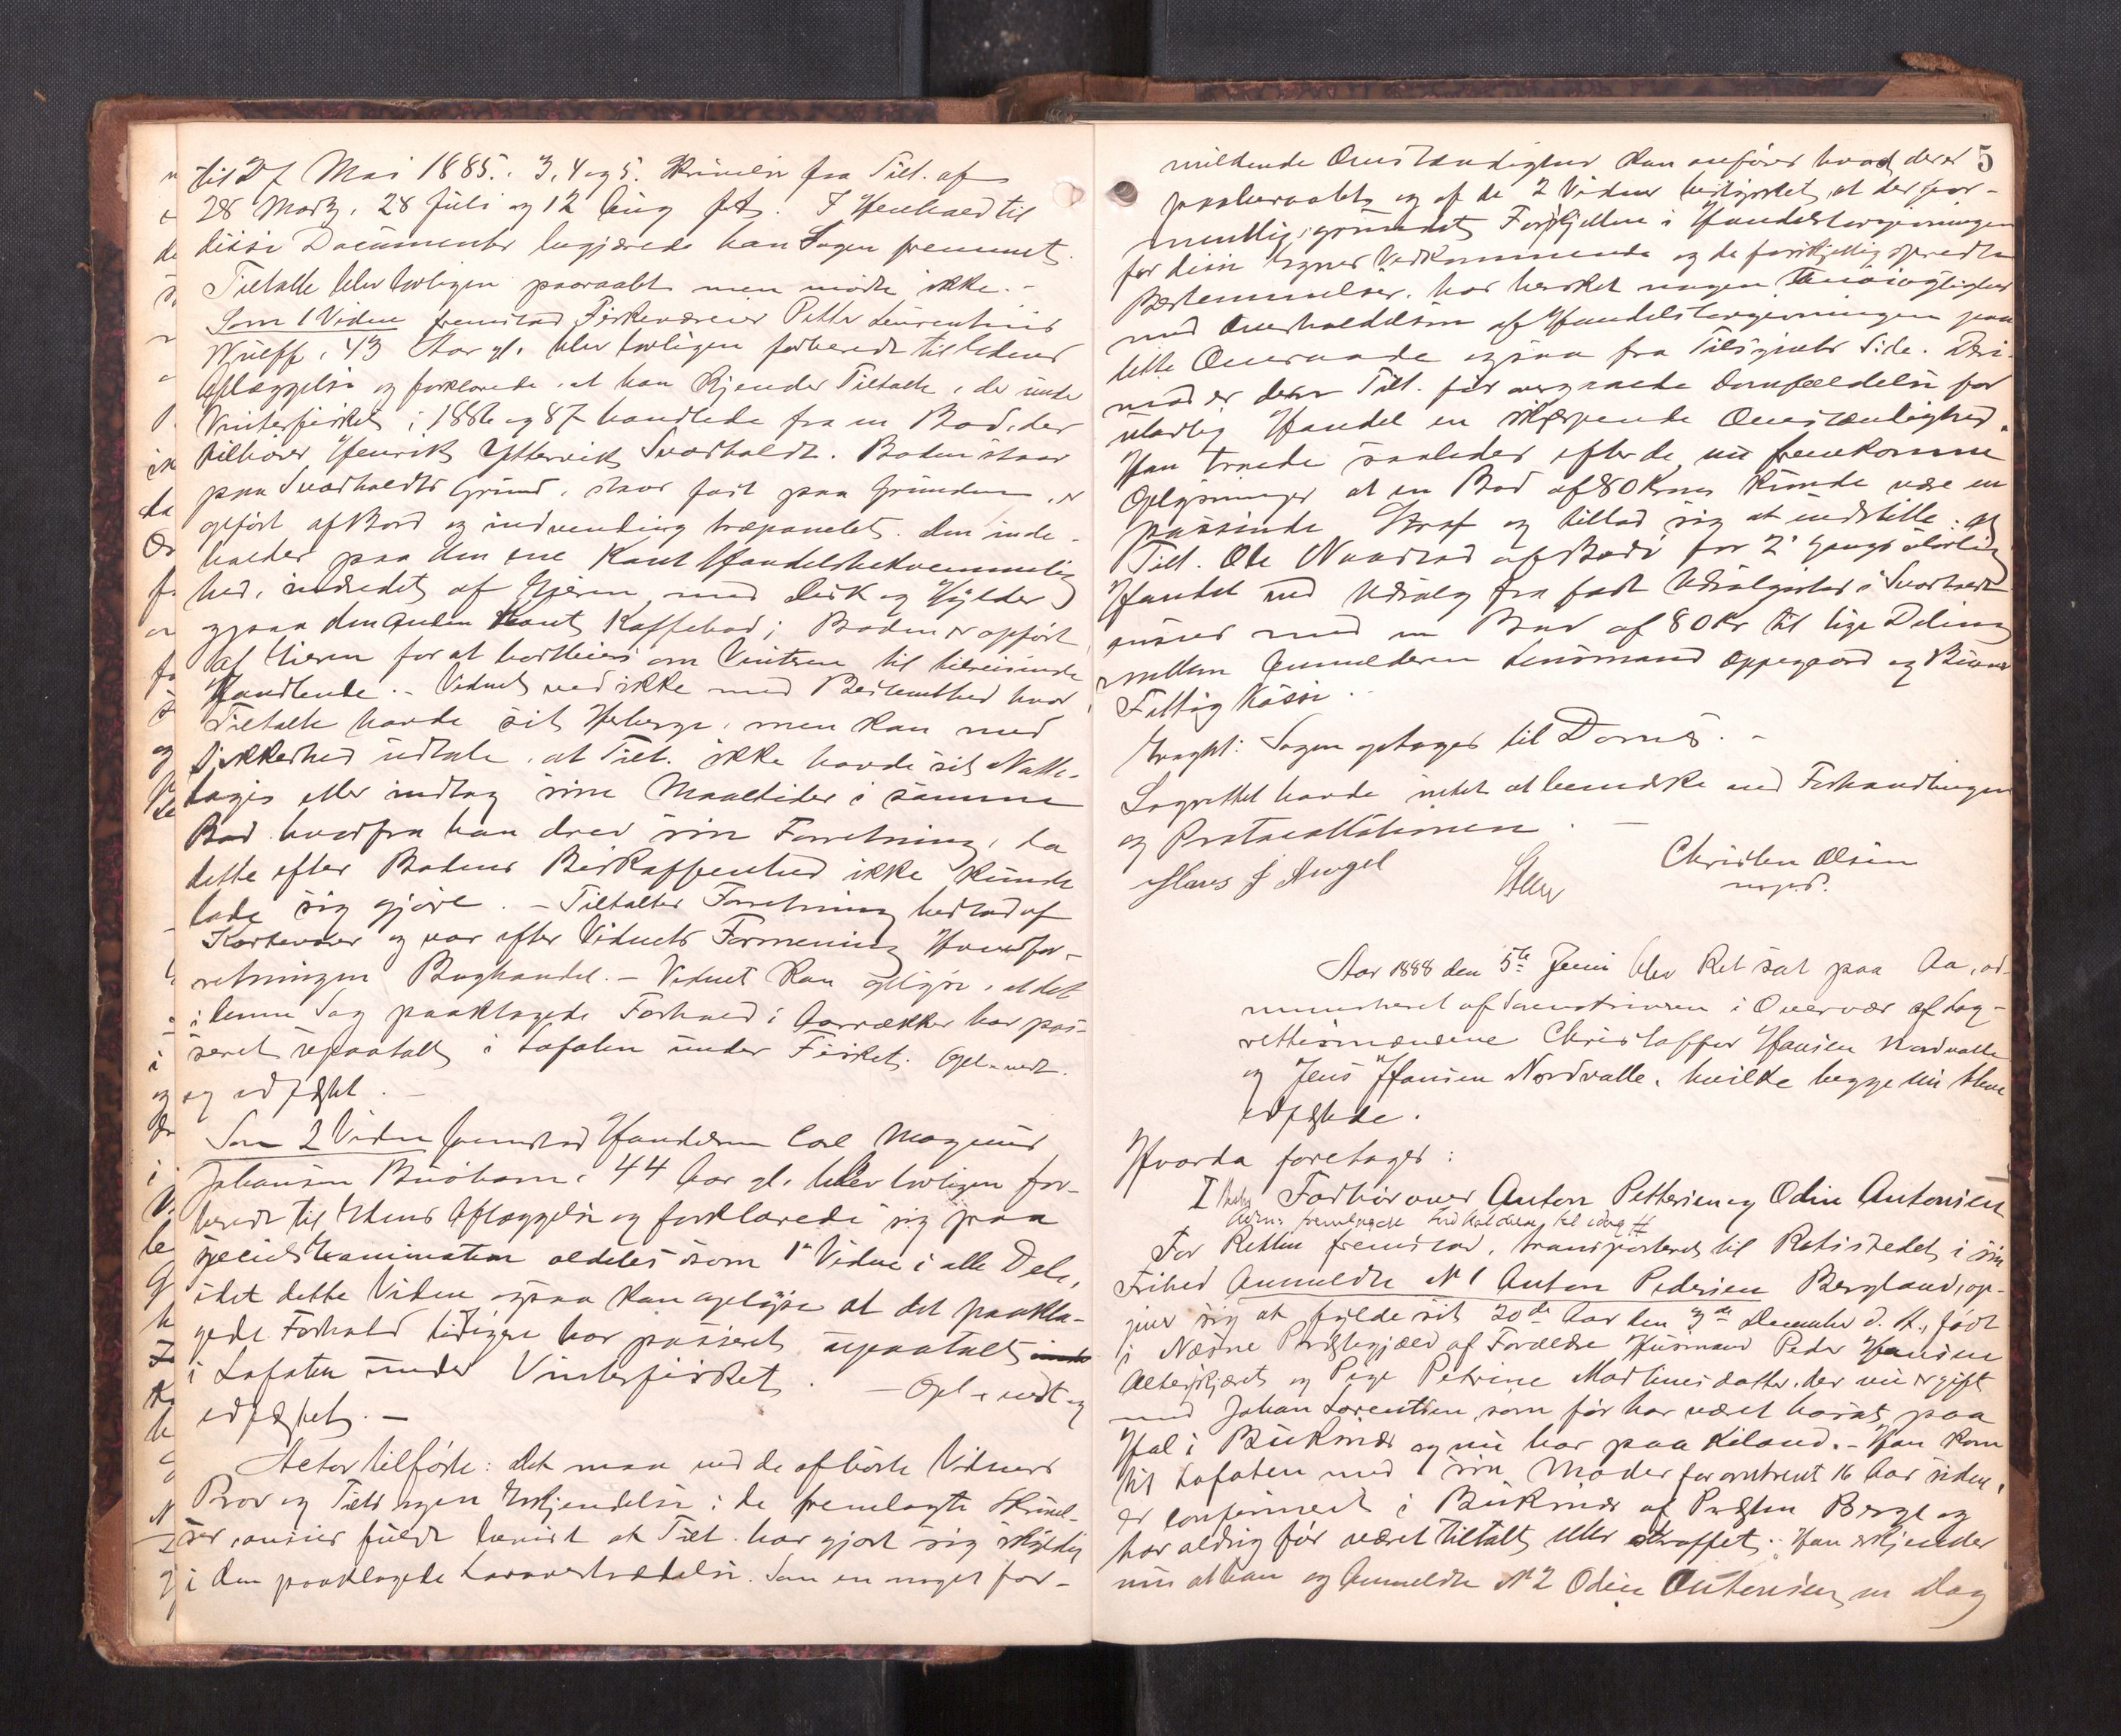 til 27 Mai 1885. 3, 4 og 5. Skrivelse fra Tilt. af
28 Marts, 28 Juli og 12 Aug f. A. I Henhold til
disse Documenter begjærede han Sagen fremmet.
Tiltalte blev lovligen paaraabt men mødte ikke. -
Som 1 Vidne fremstod Fiskeværeier Petter Laurentius
Wulff, 43 Aar gl. blev lovligen forberedt til Edens
Aflæggelse og forklarede, at han kjender Tiltalte, der under
Vinterfisket i 1886 og 87 handlede fra en Bod, der
tilhører Henrik Yttervik Svarholdt. Boden staar
paa Svarholdts Grund, staar fast paa Grunden, er
opført af Bord og indvending træpanelet. Den inde-
holder paa den ene Kant Handelsbekvemmelig
hed, indredet af Eieren, med Disk og Hylder
og paa den anden Kant Kaffebod; Boden er opført
af Eieren for at bortleies om Vinteren til tilreisende
Handlende. - Vidnet ved ikke med Bestemthed hvor
Tiltalte havde sit Herberge, men kan med
Sikkerhed udtale, at Tilt. ikke havde sit Natte-
logis eller indtog sine Maaltider i samme
Bod hvorfra han drev sin Forretning, da
dette efter Bodens Beskaffenhed ikke kunde
lade sig gjøre. - Tiltaltes Forretning bestod af
Kortevarer og var efter Vidnets Formening Hovedfor-
retningen Boghandel. - Vidnet kan oplyse, at det
i denne Sag paaklagede Forhold i Aarrækker har pas-
seret upaatalt i Lofoten under Fisket. Opl. vedt.
og edfæstet. -
Som 2 Vidne fremstod Handelsm Carl Magnus
Johansen Buøhavn, 44 Aar gl. blev lovligen for-
beredt til Edens Aflæggelse og forklarede sig paa
speciel Examination aldeles som 1ste Vidne i alle Dele,
idet dette Vidne ogsaa kan oplyse at det paakla-
gede Forhold tidligere har passeret upaatalt
i Lofoten under Vinterfisket. - Opl. vedt og
edfæstet. -
Actor tilførte: det man ved de afhørte Vidners
Prov og Tilts egen Erkjendelse i de fremlagte Skrivel-
ser, ansees fuldt bevist at Tilt. har gjort sig skyldig
i den paaklagede Lovovertrædelse. Som en noget for-
5
mildende Omstændighed kan anføres hvad der er
paaberaabt og af de 2 Vidner bestyrket, at der for-
mentlig, grundet Forskjellen i Handelslovgivningen
for disse Egnes Vedkommende og de forskjellig spredte
Bestemmelser, har hersket nogen Unøiagtighed
med Overholdelsen af Handelslovgivningen paa
dette Omraade ogsaa fra Tilsynets Side. Deri-
mod er dens Tilt. før overgaaede Domfældelse for
ulovlig Handel en skjærpende Omstændighed.
Han troede saaledes efter de nu fremkomne
Oplysninger at en Bod af 80 Kroner kunde være en
passende Straf og tillod sig at indstille: at
Tilt. Ole Naastad af Bodø for 2' Gangs ulovlig
Handel ved Udsalg fra fast Udsalgssted i Svarholdt
ansees med en Bod af 80 Kr til lige Deling
mellem Anmelderen Lensmand Oppegaard og
Fattig Kasse.
Eragt: Sagen optages til Doms. -
Lagrettet havde intet at bemærke ved Forhandlingen
og Protocollationen. -
Hans J Angel
Christen Olsen
m. p. P.
Aar 1888 den 5te Juni blev Ret sat paa Aa, ad-
ministreret af Sorenskriveren i Overvær af Lag-
rettesmændene Christoffer Hansen Nordvalle
og Jens Hansen Nordvalle, hvilke begge nu bleve
edfæstede.
Hvorda foretoges:
I Forhør over Anton Pettersen og Odin Antonsen
For Retten fremstod, transporteret til Retsstedet, i sin
Frihed Anmeldte No 1 Anton Pedersen Bergland, op-
giver sig at fylde sit 20de Aar den 3de December d. A., født
i Næsne Præstegjæld af Forældre Husmand Peder Hansen
Alterskjæret og Pige Petrine Martinesdatter, der nu er gift
med Johan Lorentsen, som før har været bosat paa
Hol i Buksnæs og nu bor paa Kiland. - Han kom
til Lofoten med sin Moder for omtrent 16 Aar siden,
er confirmeret i Buksnæs af Præsten Berge og
har aldrig før været tiltalt eller straffet. Han erkjender
nu at han og Anmeldte No 2 Odin Antonsen en Dag